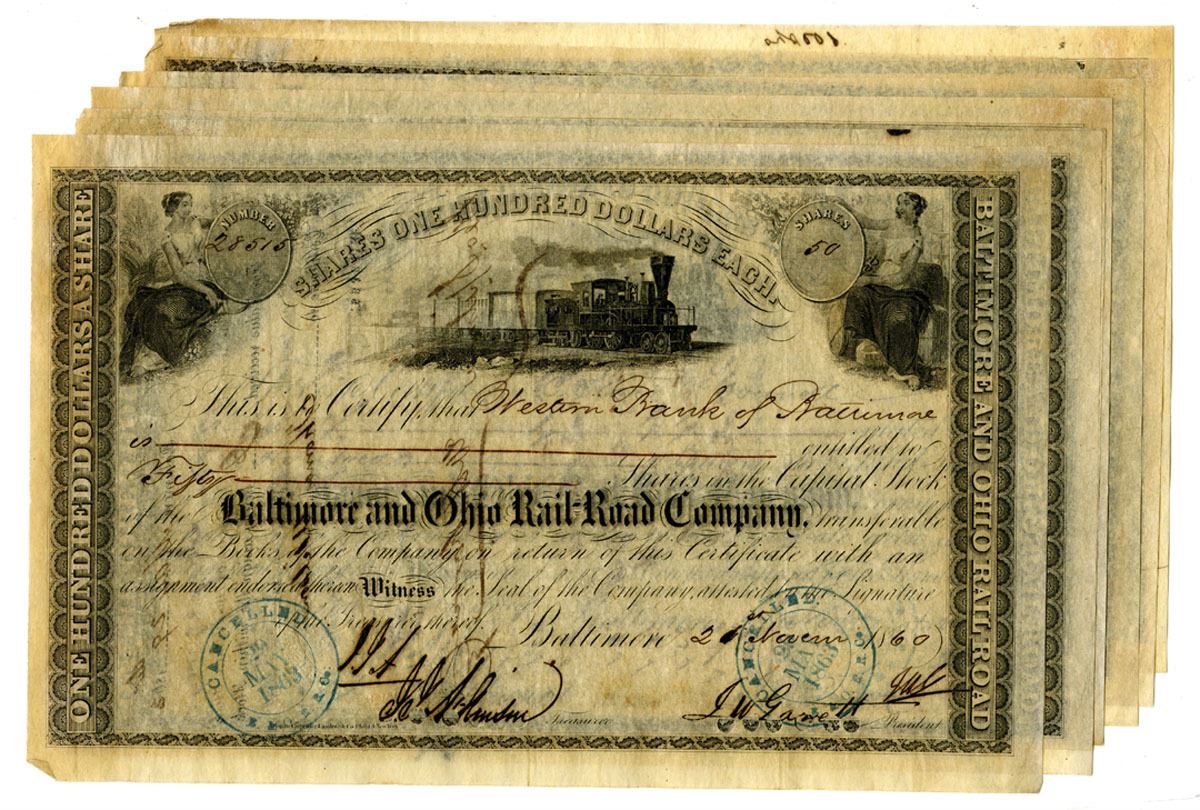 100 Shs
ONE HUNDRED DOLLARS A SHARE
NUMBER
28515
SHARES ONE HUNDRED DOLLARS EACH.
SHARES
50
BALTIMORE AND OHIO RAIL ROAD
This is to Certify, that Western Bank of Baltimore
is entitled to
Fifty Shares in the Capital Stock
of the Baltimore and Ohio Rail-Road Company, transferable
on the Books of the Company on return of this Certificate with an
assignment endorsed thereon Witness the Seal of the Company, attested by the Signature
of the Treasurer thereof.
Baltimore 2 Novem 1860
CANCELLED
MAY
1863
CANCELLED
MAY
1863
Treasurer
J W Garrett President